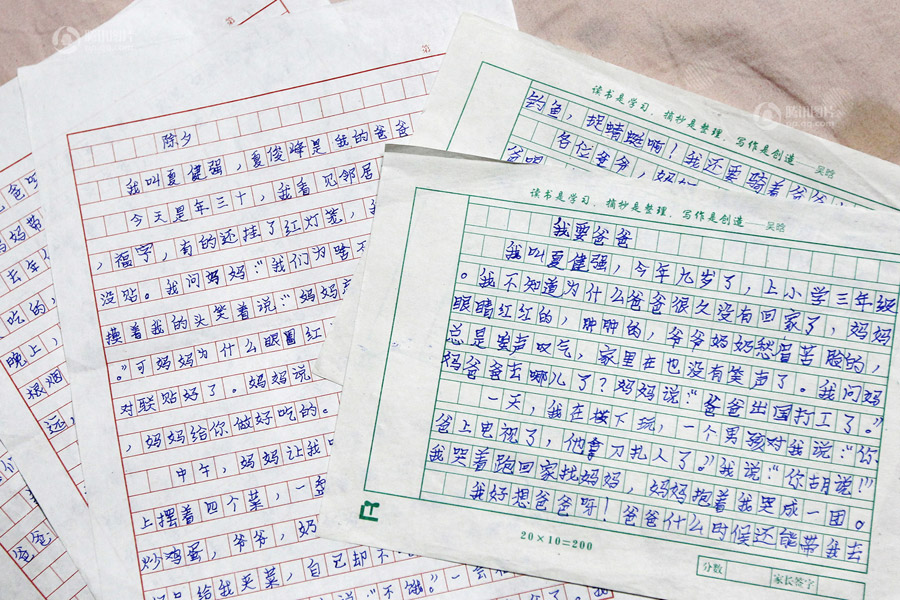 除夕
我叫夏健强，夏俊峰是我的爸爸
今天是年三十，我看见邻居
，福字，有的还挂了红灯笼，
没贴。我问妈妈：“我们为啥不
摸着我的头笑着说：“妈妈
。”可妈妈为什么眼圈红
对联贴好了。妈妈说
，妈妈给你做好吃的。
中午，妈妈让我
上摆着四个菜，一
炒鸡蛋，爷爷，奶
只给我夹菜，自己却不
说“不饿。”一会
妈妈带
去年
吃的，
晚上，
爸爸
读书是学习，摘抄是整理，写作是创造——吴晗
钓鱼，捉蜻蜓啊！我还要骑着爷爷
各位爷爷，妈妈
读书是学习，摘抄是整理，写作是创造——吴晗
我要爸爸
我叫夏健强，今年九岁了，上小学三年级
。我不知道为什么爸爸很久没有回家了，妈妈
眼睛红红的，肿肿的，爷爷奶奶愁眉苦脸的，
总是唉声叹气，家里在也没有笑声了。我问妈
妈爸爸去哪儿了？妈妈说：“爸爸出国打工了。”
一天，我在楼下玩，一个男孩对我说：“你
爸上电视了，他拿刀扎人了。”我说：“你胡说！”
我哭着跑回家找妈妈，妈妈抱着我哭成一团。
我好想爸爸呀！爸爸什么时候还能带我去
20×10=200
分数
家长签字